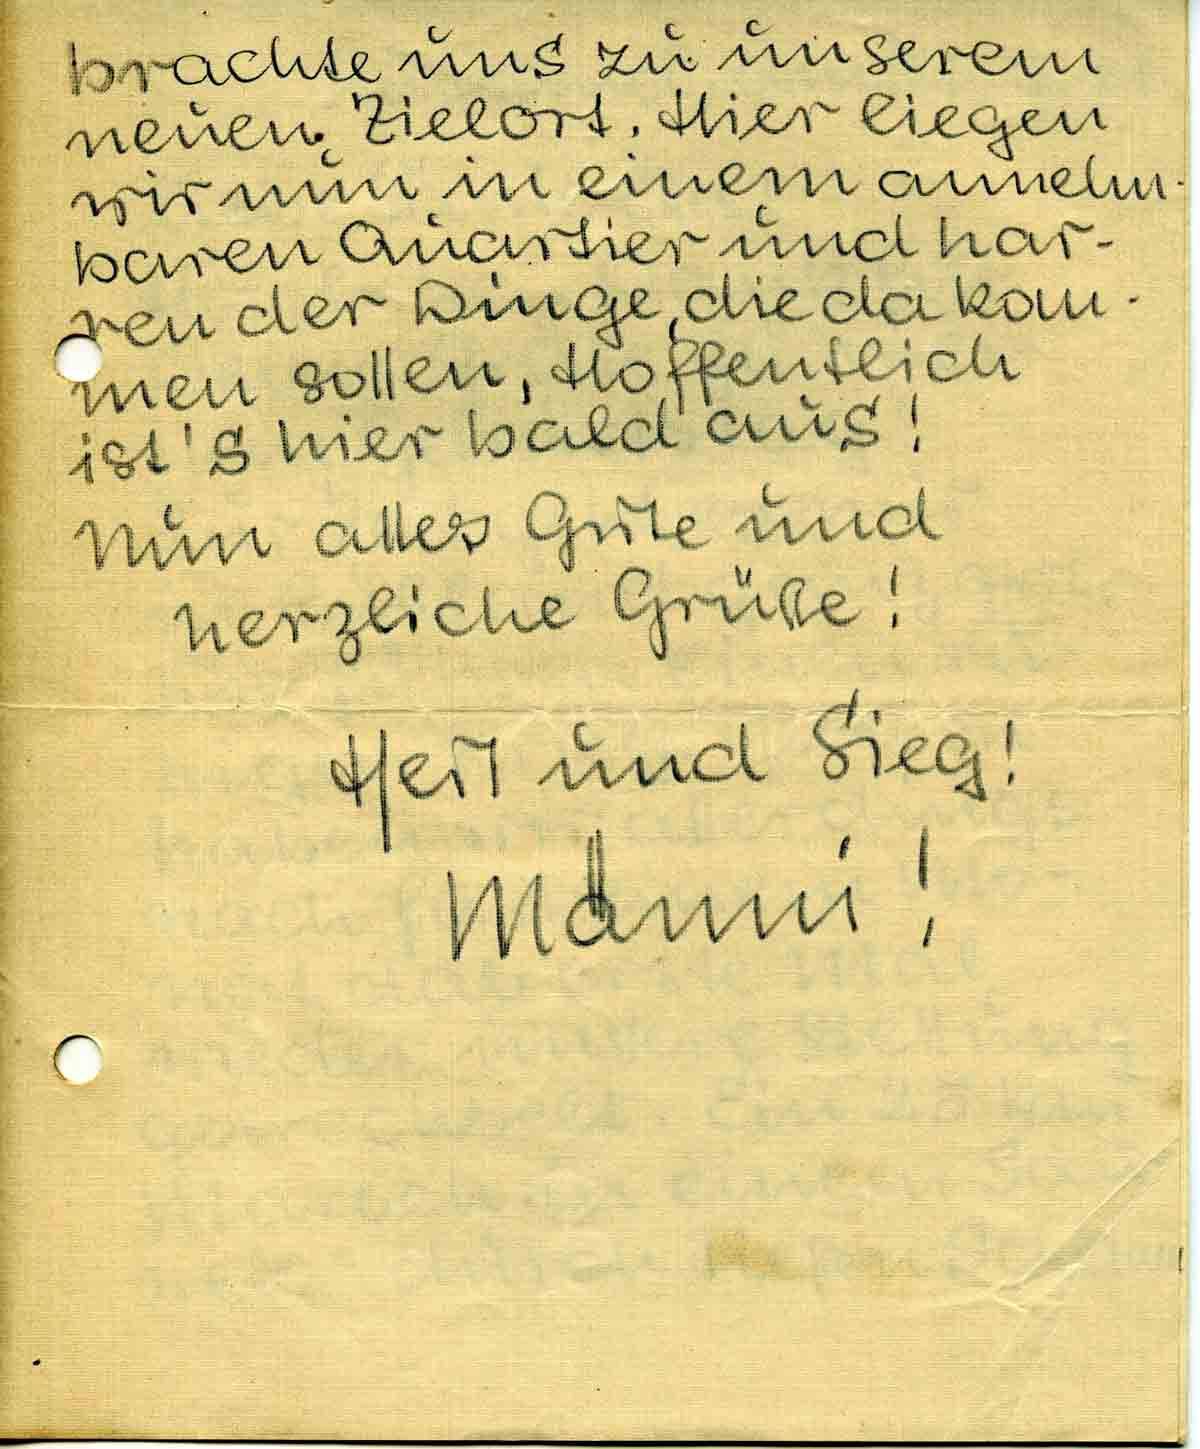 brachte uns zu unserem
neuen Zielort. Hier liegen
wir nun in einem annehm-
baren Quartier und har-
ren der Dinge, die da kom-
men sollen, Hoffentlich
ist's hier bald aus!
Nun alles Gute und
herzliche Grüße!
Heil und Sieg!
Manni!